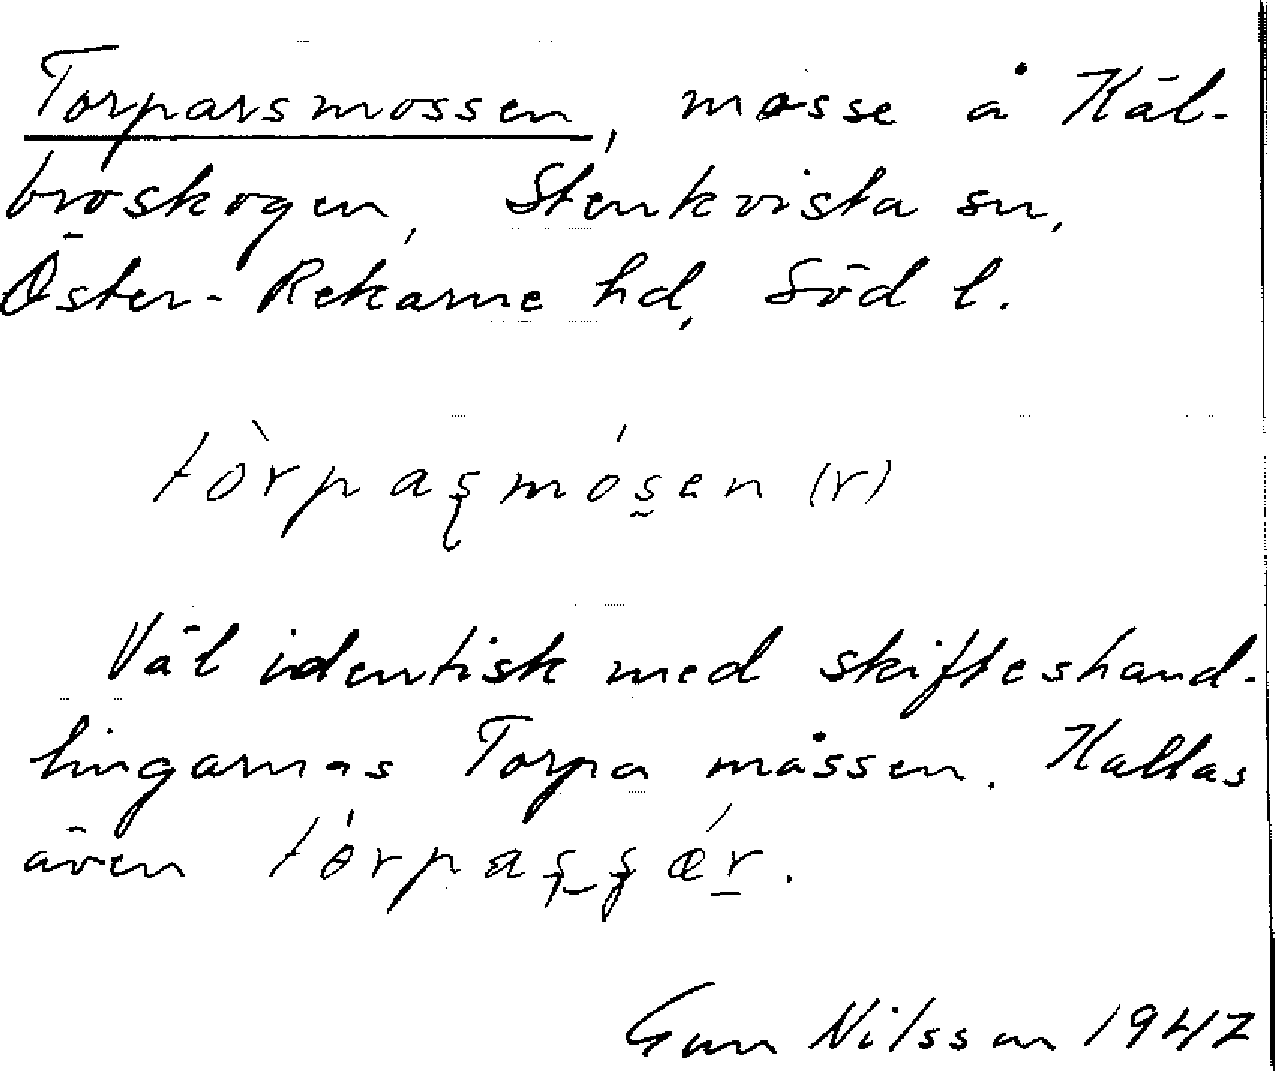 Torparsmossen, mosse å Käl-
broskogen, Stenkvista sn,
Öster-Rekarne hd, Söd l.
tòrpaʂmósen (r)
Väl identisk med skifteshand-
lingarnas Torpa måssen. Kallas
även tórpaʂʂǽr.
Gun Nilsson 1947